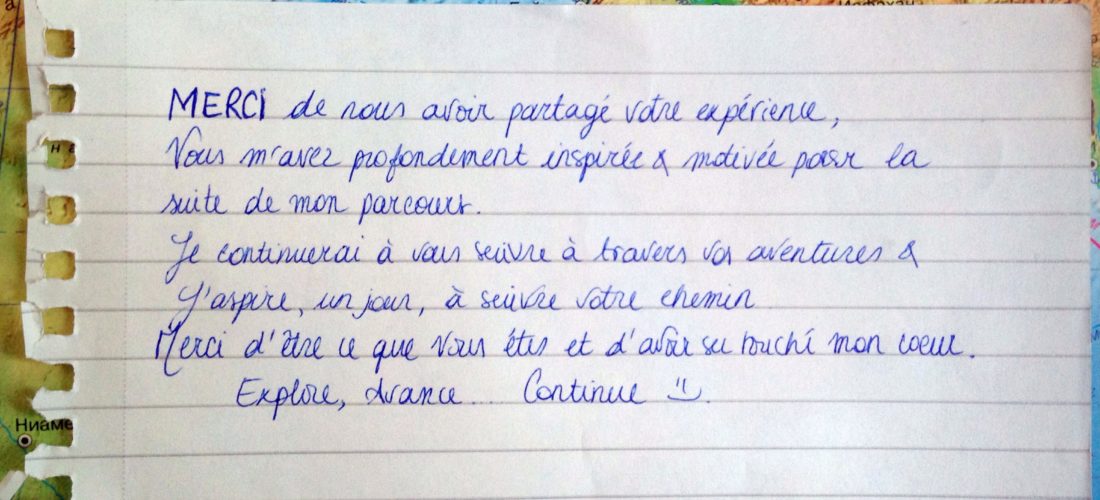 Исфахан
MERCI de nous avoir partagé votre expérience,
Vous m'avez profondément inspirée & motivée pour la
suite de mon parcours.
Je continuerai à vous suivre à travers vos aventures &
J'aspire, un jour, à suivre votre chemin
Merci d'être ce que vous êtes et d'avoir su touché mon coeur.
Explore, Avance... Continue =).
Ниаме